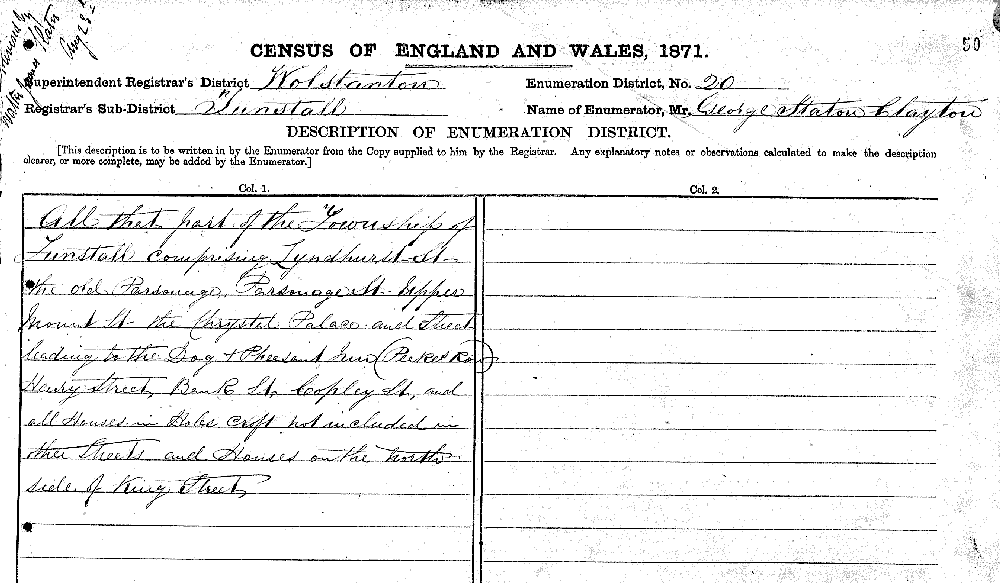 Walter James Slater
Aug 28
50
CENSUS OF ENGLAND AND WALES, 1871.
Superintendent Registrar's District Wolstanton
Enumeration District, No. 20
Registrar's Sub-District Tunstall
Name of Enumerator, Mr. George Staton Clayton
DESCRIPTION OF ENUMERATION DISTRICT.
[This description is to be written in by the Enumerator from the Copy supplied to him by the Registrar. Any explanatory notes or observations calculated to make the description
clearer, or more complete, may be added by the Enumerator.]
Col. 1.
Col. 2.
All that part of the Township of
Tunstall comprising Lyndhurst St
the old Parsonage, Parsonage St Upper
Mount St the Chrystel Palace and Street
leading to the Dog & Pheasant Inn (Row)
Henry Street, Bank St, Copley St, and
all Houses in croft not included in
other Streets and Houses on the north
side of King Street